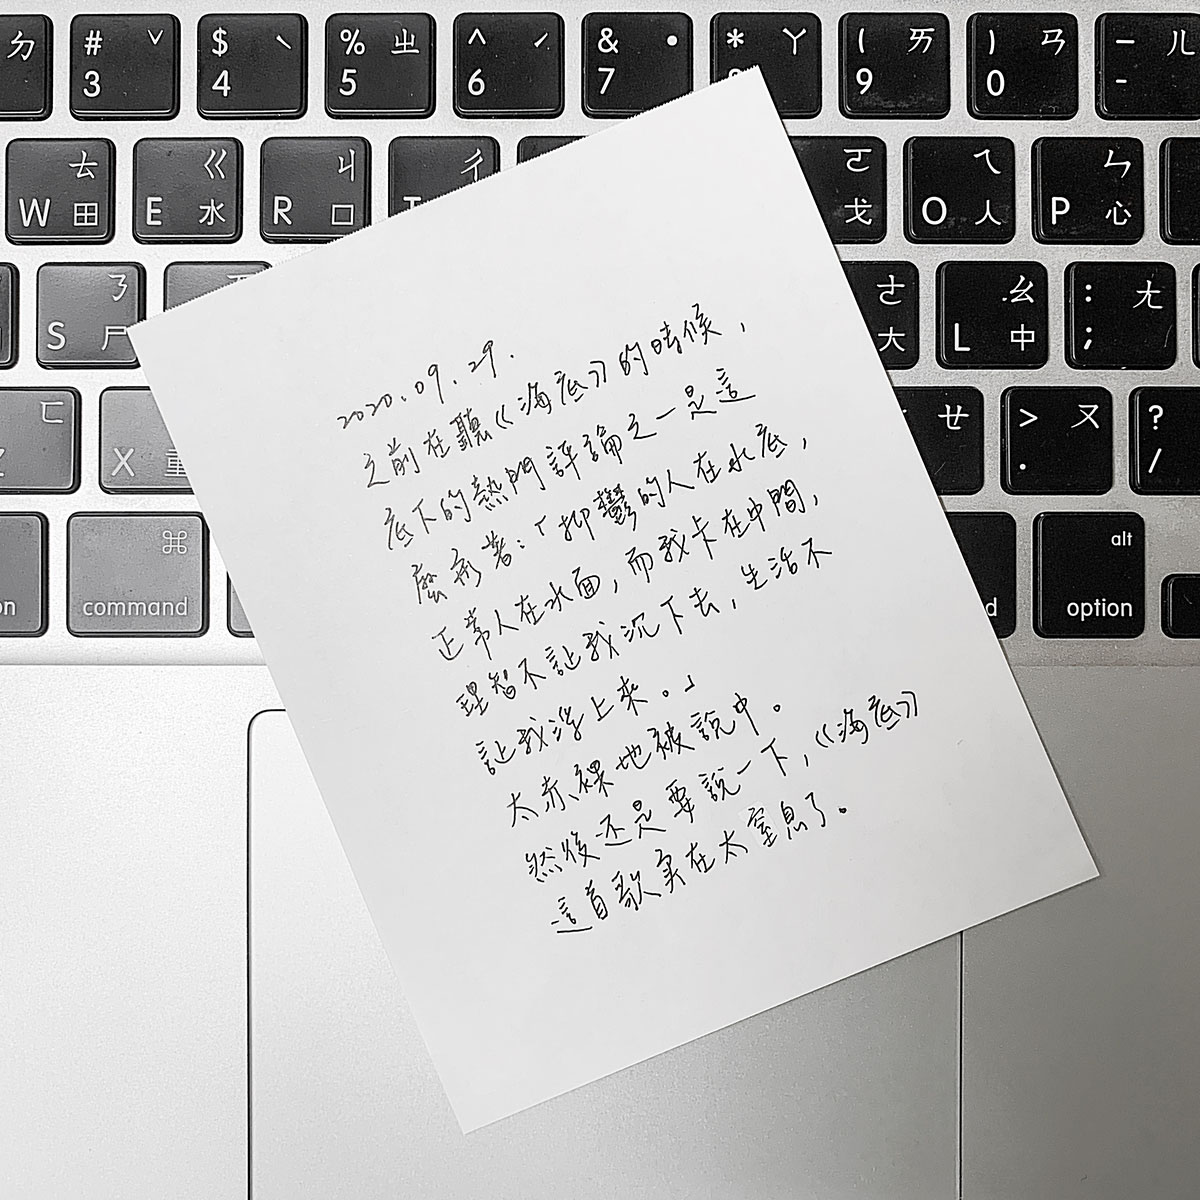 ㄅ # ˇ $ ˋ % ㄓ ^ ˊ & ˙ * ㄚ ( ㄞ ) ㄢ — ㄦ
3 4 5 6 7 9 0 -
ㄊ ㄍ ㄐ ㄔ ㄛ ㄟ ㄣ
W 田 E 水 R 口 戈 O 人 P 心
ㄋ ㄜ ㄠ : ㄤ
S 尸 大 L 中 ;
ㄈ ㄝ > ㄡ ?
X . /
⌘ alt
command option
2020.09.29.
之前在聽《海底》的時候，
底下的熱門評論之一是這
麼寫著：「抑鬱的人在水底，
正常人在水面，而我卡在中間，
理智不讓我沉下去，生活不
讓我浮上來。」
太赤裸地被說中。
然後還是要說一下，《海底》
這首歌實在太窒息了。